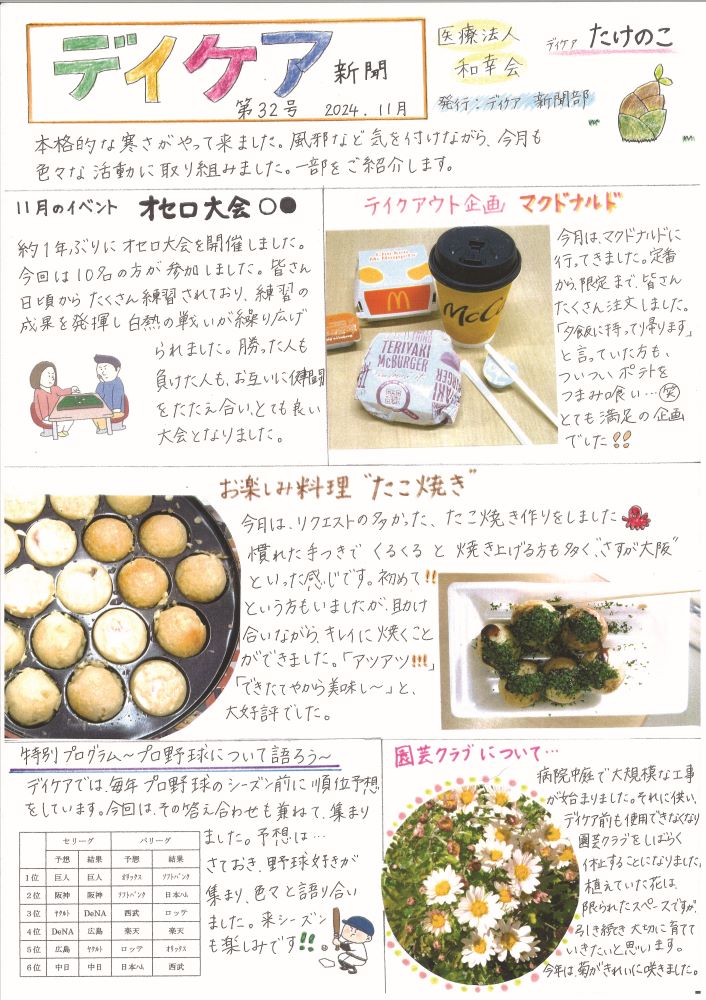 デイケア新聞
第32号 2024.11月
医療法人
和幸会
デイケア たけのこ
発行：デイケア 新聞部
本格的な寒さがやって来ました。風邪など気を付けながら、今月も
色々な活動に取り組みました。一部をご紹介します。
11月のイベント オセロ大会○●
約1年ぶりにオセロ大会を開催しました。
今回は10名の方が参加しました。皆さん
日頃からたくさん練習されており、練習の
成果を発揮し白熱の戦いが繰り広げ
られました。勝った人も
負けた人も、お互いに健闘
をたたえ合い、とても良い
大会となりました。
テイクアウト企画 マクドナルド
今月は、マクドナルドに
行ってきました。定番
から、限定まで、皆さん
たくさん注文しました。
「夕飯に持って帰ります」
と言っていた方も、
ついつい ポテトを
つまみ喰い…笑
とても満足の企画
でした!!
Chicken
McNuggets
McCa
TERIYAKI
McBURGER
お楽しみ料理 "たこ焼き"
今月は、リクエストの多かった、たこ焼き作りをしました
慣れた手つきで くるくる と 焼き上げる方も多く、"さすが大阪"
といった感じです。初めて!!
という方もいましたが、助け
合いながら、キレイに焼くこと
ができました。「アツアツ!!!」
「できたてやから美味し～」と、
大好評でした。
特別プログラム～プロ野球について語ろう～
デイケアでは、毎年プロ野球のシーズン前に順位予想
をしています。今回は、その答え合わせも兼ねて、集まり
ました。予想は…
さておき、野球好きが
集まり、色々と語り合い
ました。来シーズン
も楽しみです!!
セリーグ パリーグ
予想 結果 予想 結果
1位 巨人 巨人 オリックス ソフトバンク
2位 阪神 阪神 ソフトバンク 日本ハム
3位 ヤクルト DeNA 西武 ロッテ
4位 DeNA 広島 楽天 楽天
5位 広島 ヤクルト ロッテ オリックス
6位 中日 中日 日本ハム 西武
園芸クラブについて…
病院中庭で大規模な工事
が始まりました。それに伴い、
デイケア前も使用できなくなり
園芸クラブをしばらく
休止することになりました。
植えていた花は、
限られたスペースですが、
引き続き大切に育てて
いきたいと思います。
今年は、菊がきれいに咲きました。